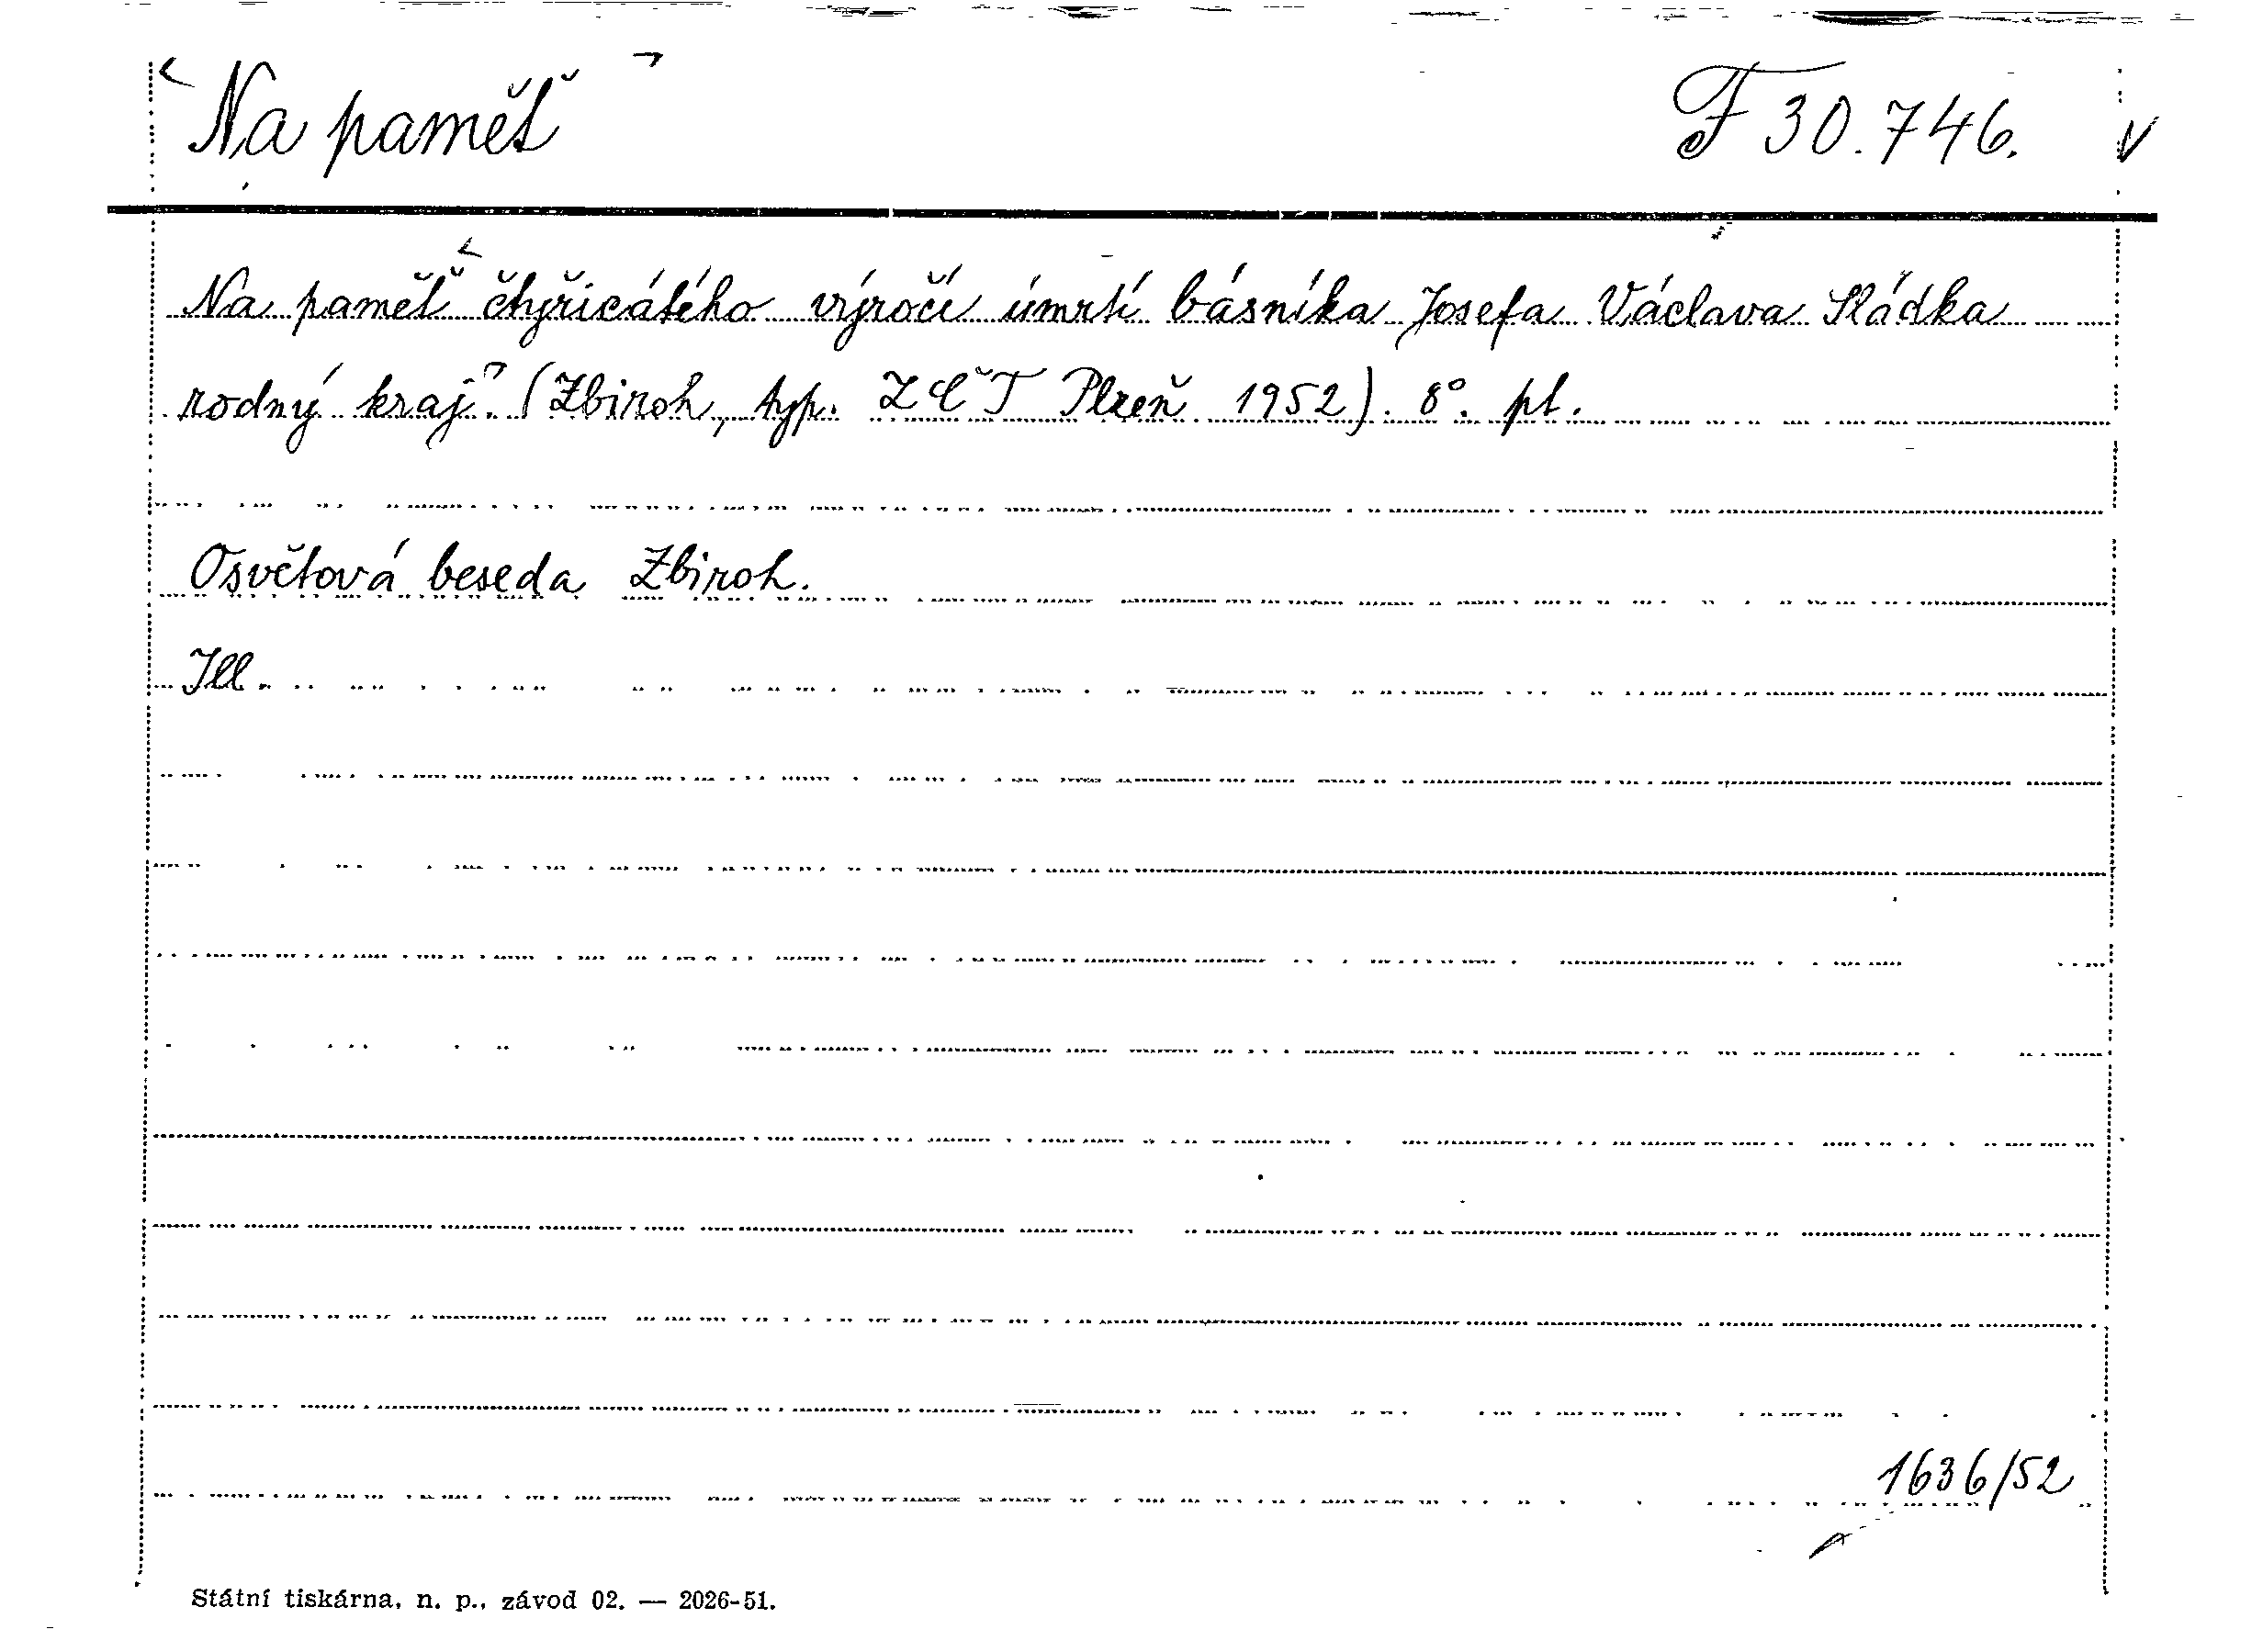 <Na paměť> F 30.746. v
Na paměť <čtyřicátého výročí úmrtí básníka Josefa Václava Sládka
rodný kraj>. (Zbiroh, typ. ZČT Plzeň 1952). 8°. pl.
Osvětová beseda Zbiroh.
Ill.
1636/52
Státní tiskárna, n. p., závod 02. — 2026-51.